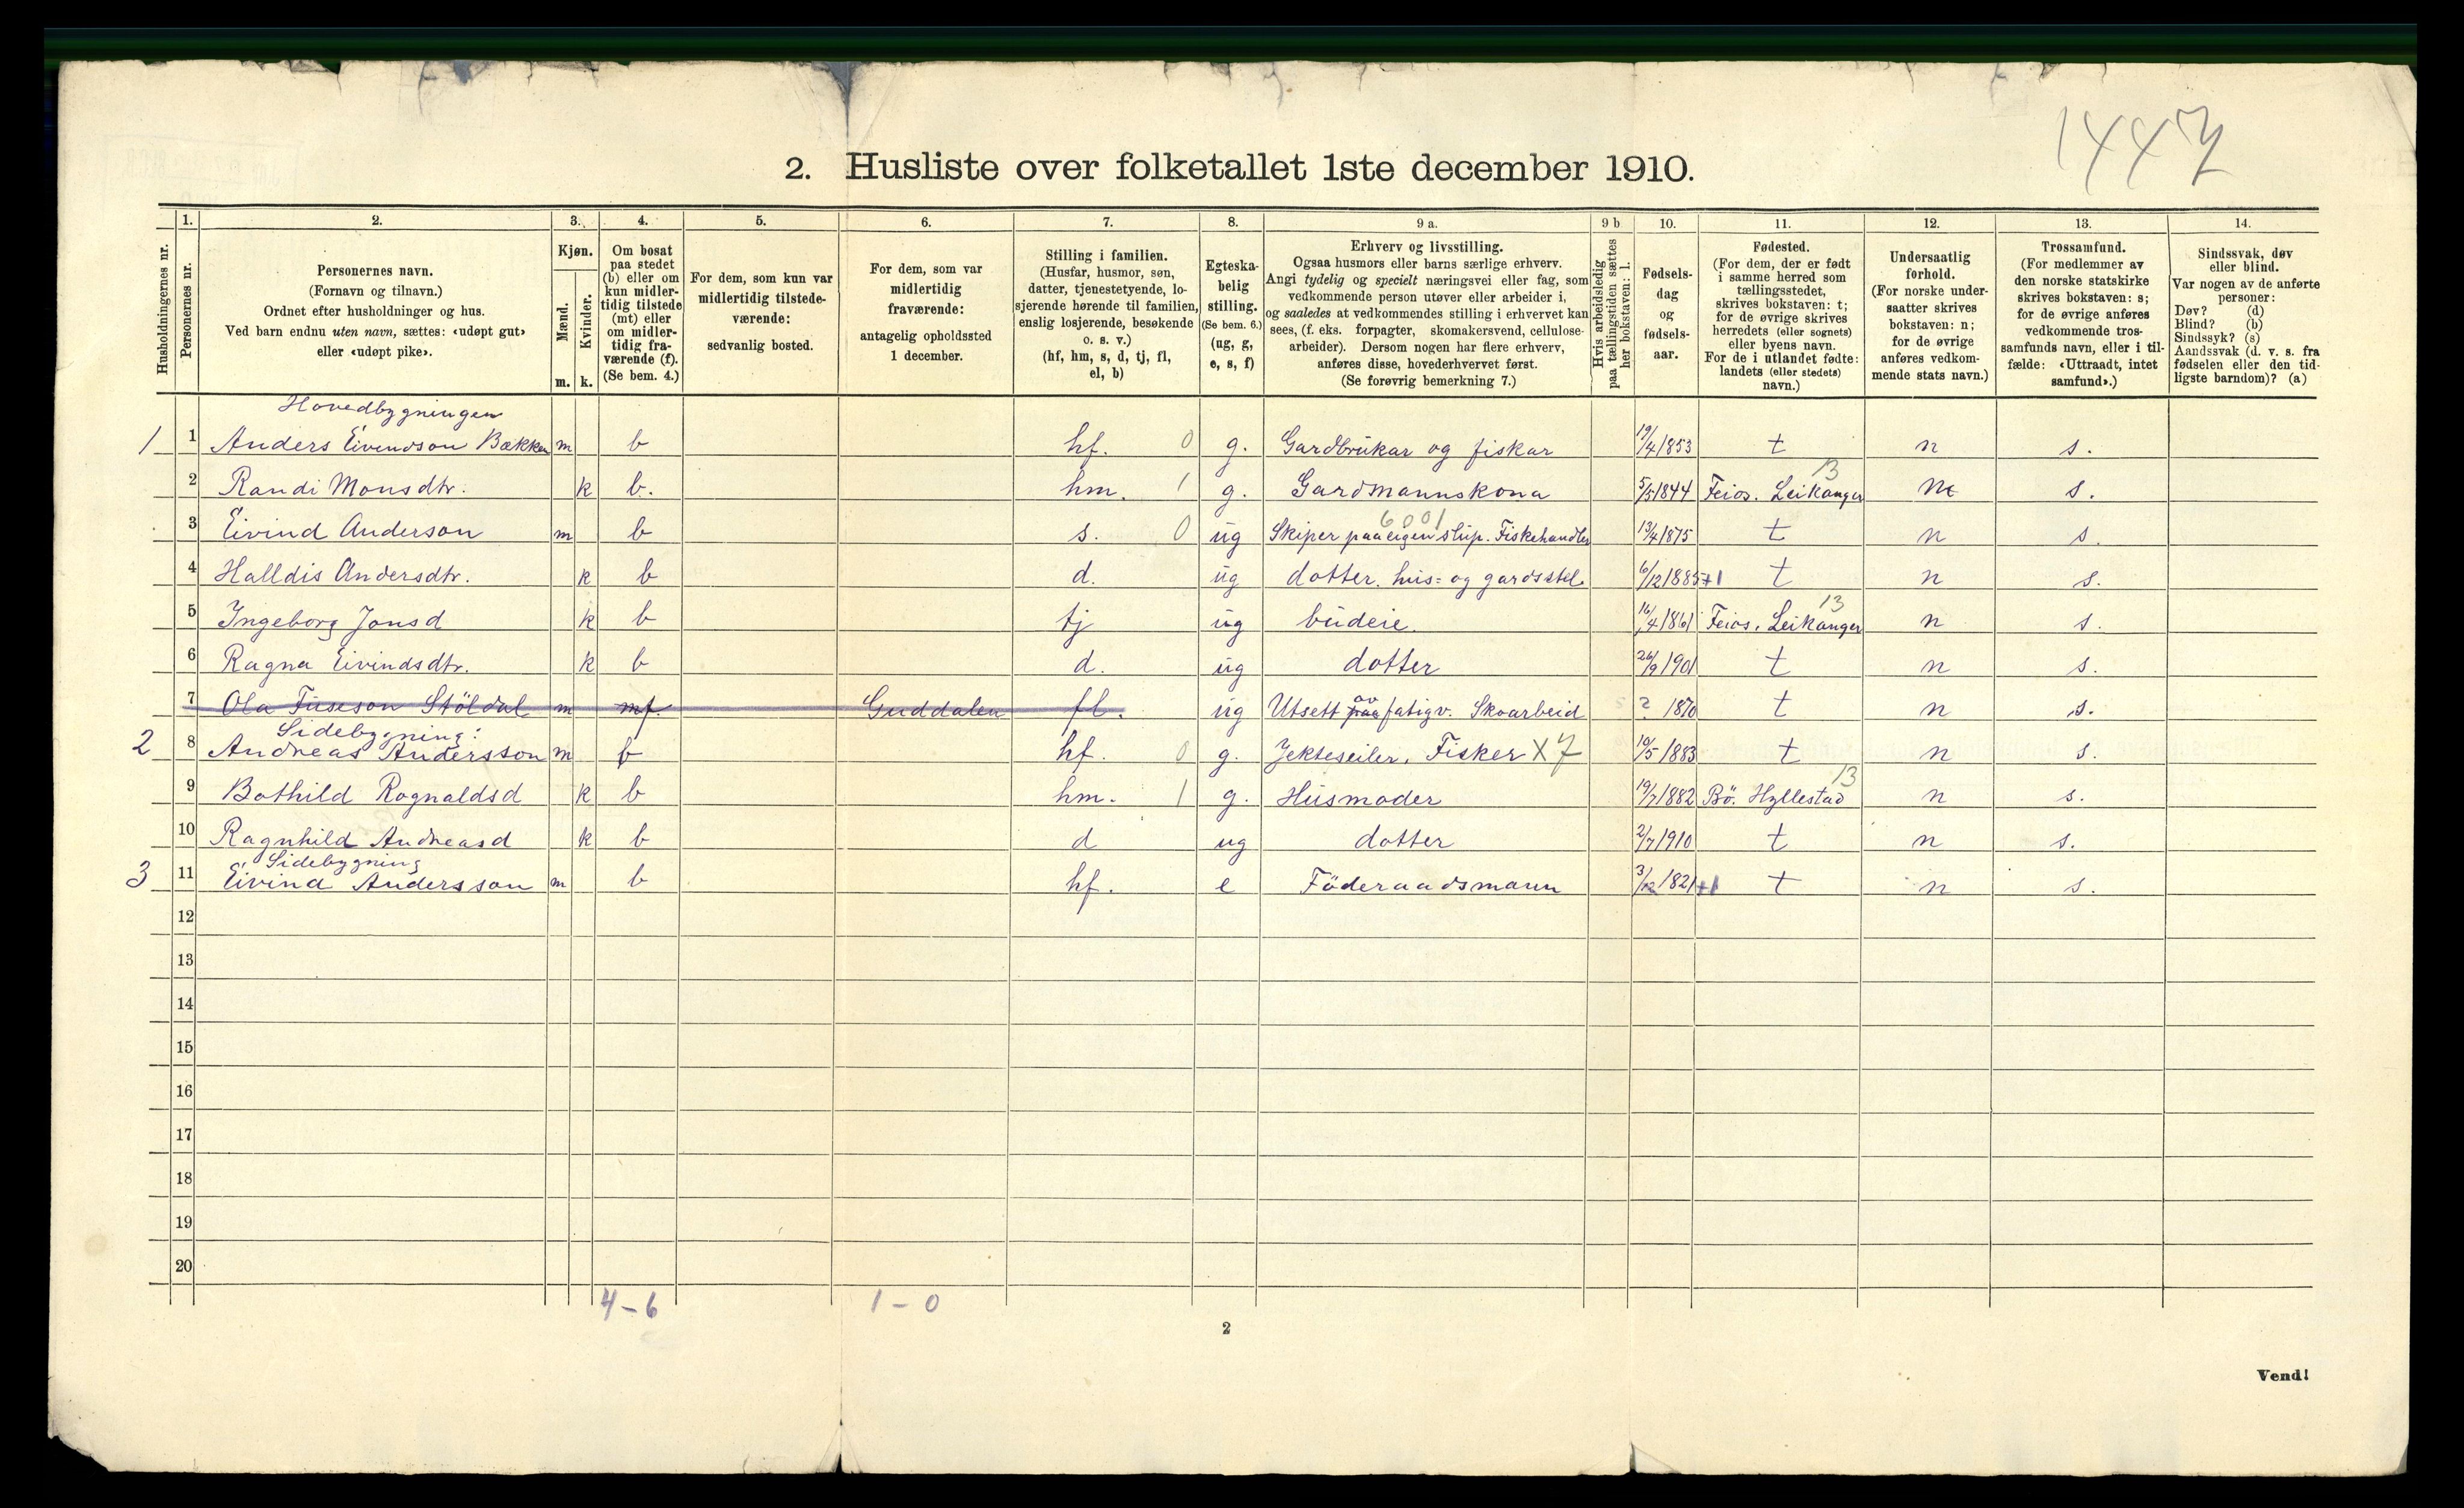 1447
2. Husliste over folketallet 1ste december 1910.
1. 2. 3. 4. 5. 6. 7. 8. 9 a. 9 b 10. 11. 12. 13. 14.
Husholdningernes nr.
Personernes nr.
Personernes navn.
(Fornavn og tilnavn.)
Ordnet efter husholdninger og hus.
Ved barn endnu uten navn, sættes: «udøpt gut»
eller «udøpt pike».
Kjøn.
Mænd.
Kvinder.
m. k.
Om bosat
paa stedet
(b) eller om
kun midler-
tidig tilstede
(mt) eller
om midler-
tidig fra-
værende (f).
(Se bem. 4.)
For dem, som kun var
midlertidig tilstede-
værende:
sedvanlig bosted.
For dem, som var
midlertidig
fraværende:
antagelig opholdssted
1 december.
Stilling i familien.
(Husfar, husmor, søn,
datter, tjenestetyende, lo-
sjerende hørende til familien,
enslig losjerende, besøkende
o. s. v.)
(hf, hm, s, d, tj, fl,
el, b)
Egteska-
belig
stilling.
(Se bem. 6.)
(ug, g,
e, s, f)
Erhverv og livsstilling.
Ogsaa husmors eller barns særlige erhverv.
Angi tydelig og specielt næringsvei eller fag, som
vedkommende person utøver eller arbeider i,
og saaledes at vedkommendes stilling i erhvervet kan
sees, (f. eks. forpagter, skomakersvend, cellulose-
arbeider). Dersom nogen har flere erhverv,
anføres disse, hovederhvervet først.
(Se forøvrig bemerkning 7.)
Hvis arbeidsledig
paa tællingstiden sættes
her bokstaven: l.
Fødsels-
dag
og
fødsels-
aar.
Fødested.
(For dem, der er født
i samme herred som
tællingsstedet,
skrives bokstaven: t;
for de øvrige skrives
herredets (eller sognets)
eller byens navn.
For de i utlandet fødte:
landets (eller stedets)
navn.)
Undersaatlig
forhold.
(For norske under-
saatter skrives
bokstaven: n;
for de øvrige
anføres vedkom-
mende stats navn.)
Trossamfund.
(For medlemmer av
den norske statskirke
skrives bokstaven: s;
for de øvrige anføres
vedkommende tros-
samfunds navn, eller i til-
fælde: «Uttraadt, intet
samfund».)
Sindssvak, døv
eller blind.
Var nogen av de anførte
personer:
Døv? (d)
Blind? (b)
Sindssyk? (s)
Aandssvak (d. v. s. fra
fødselen eller den tid-
ligste barndom)? (a)
Hovedbygningen
1 1 Anders Eivendson Bækken m b hf. 0 g. Gardbrukar og fiskar 19/4 1853 t n s.
13
2 Randi Monsdtr. k b. hm. 1 g. Gardmannskona 5/5 1844 Feios. Leikanger n s.
6001
3 Eivind Anderson m b s. 0 ug Skiper paa eigen slup. Fiskehandler 13/4 1875 t n s.
4 Halldis Andersdtr. k b d. ug dotter. hus= og gardsstel 6/12 1885+1 t n s.
13
5 Ingeborg Jonsd k b tj ug budeie. 16/4 1861 Feios. Leikanger n s.
6 Ragna Eivindsdtr. k b d. ug dotter 26/9 1901 t n s.
av
7 Ola Fuseson Stöldal m mf. Guddalen fl. ug Utsett paa fatigv. Skoarbeid ? 1870 t n s.
Sidebygning:
2 8 Andreas Andersson m b hf. 0 g. Jekteseiler. Fisker X7 10/5 1883 t n s.
13
9 Bothild Rognaldsd k b hm. 1 g. Husmoder 19/7 1882 Bö. Hyllestad n s.
10 Ragnhild Andreasd k b d ug dotter 2/7 1910 t n s.
Sidebygning
3 11 Eivind Andersson m b hf. e Föderaadsmann 3/12 1821+1 t n s.
12
13
14
15
16
17
18
19
20
4-6 1-0
2
Vend!